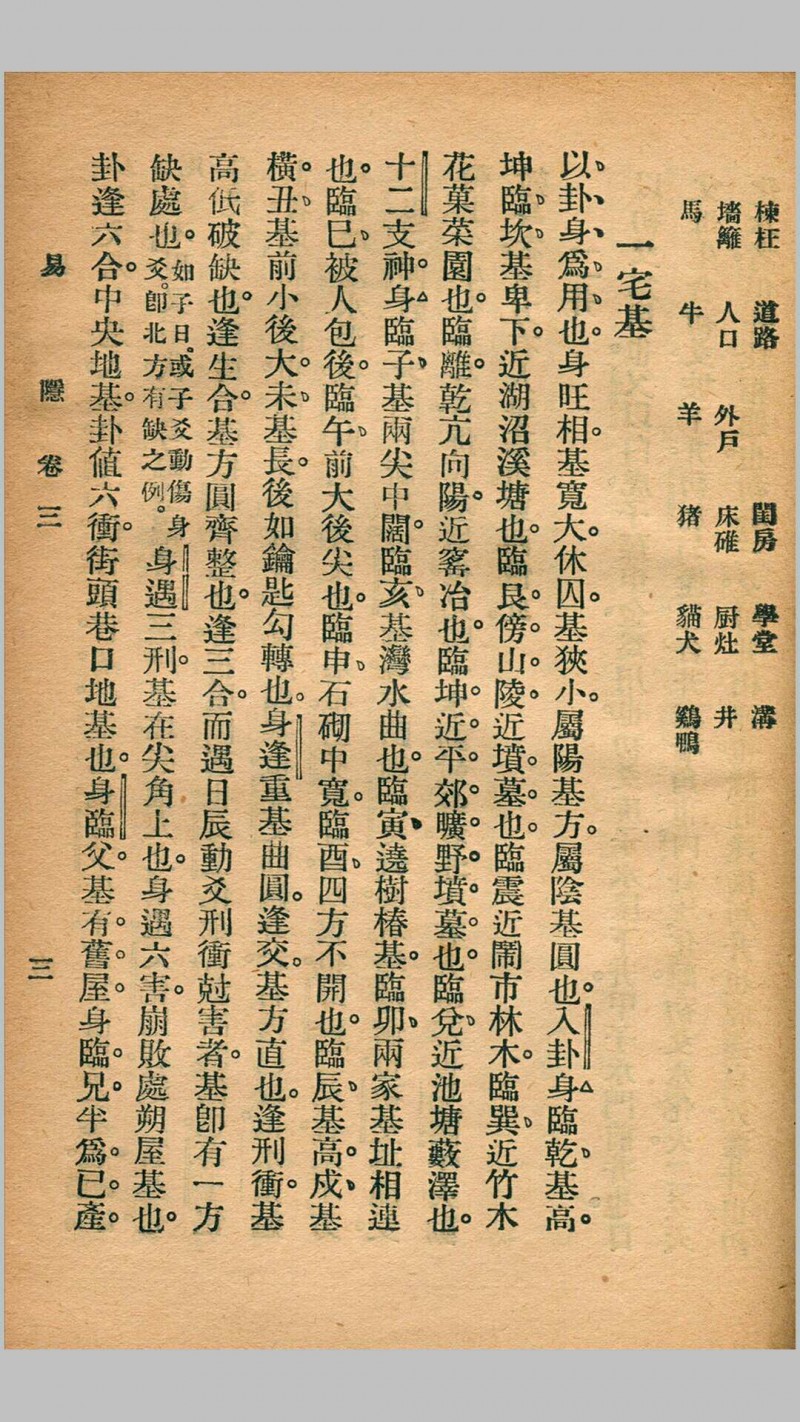 棟枉 道路 閨房 學堂 溝
墻籬 人口 外戶 床碓 厨灶 井
馬 牛 羊 猪 貓犬 鷄鴨
一宅基
以、卦、身、爲、用、也。身旺相。基寬大。休囚。基狹小。屬陽基方。屬陰基圓也。入卦身△臨乾、基高。
坤臨、坎、基卑下。近湖沼溪塘也。臨艮。傍。山。陵。近墳。墓。也。臨震近鬧市林木。臨巽、近竹木
花菓菜園也。臨離。乾亢向陽。近窰冶也。臨坤。近。平。郊。曠。野。墳。墓。也。臨兌、近池塘藪澤也。
十二支神。身△臨子、基兩尖中闊。臨亥、基灣水曲也。臨寅、遶樹椿基。臨卯、兩家基址相連
也。臨巳、被人包後。臨午、前大後尖也。臨申、石砌中寬。臨酉、四方不開也。臨辰、基高。戍、基
橫。丑、基前小後大。未、基長。後如鑰匙勾轉也。身逢重基曲圓。逢交。基方直也。逢刑衝。基
高低破缺也。逢生合。基方圓齊整也。逢三合。而遇日辰動爻刑衝尅害者。基卽有一方
缺處也。如子日。或子爻動傷身爻。卽北方有缺之例。身遇三刑。基在尖角上也。身遇六害。崩敗處朔屋基也。
卦逢六合。中央地基。卦値六衝。街頭巷口地基也。身臨父。基有。舊。屋。身臨。兄。半爲。已。產。
易 隱 卷三 三